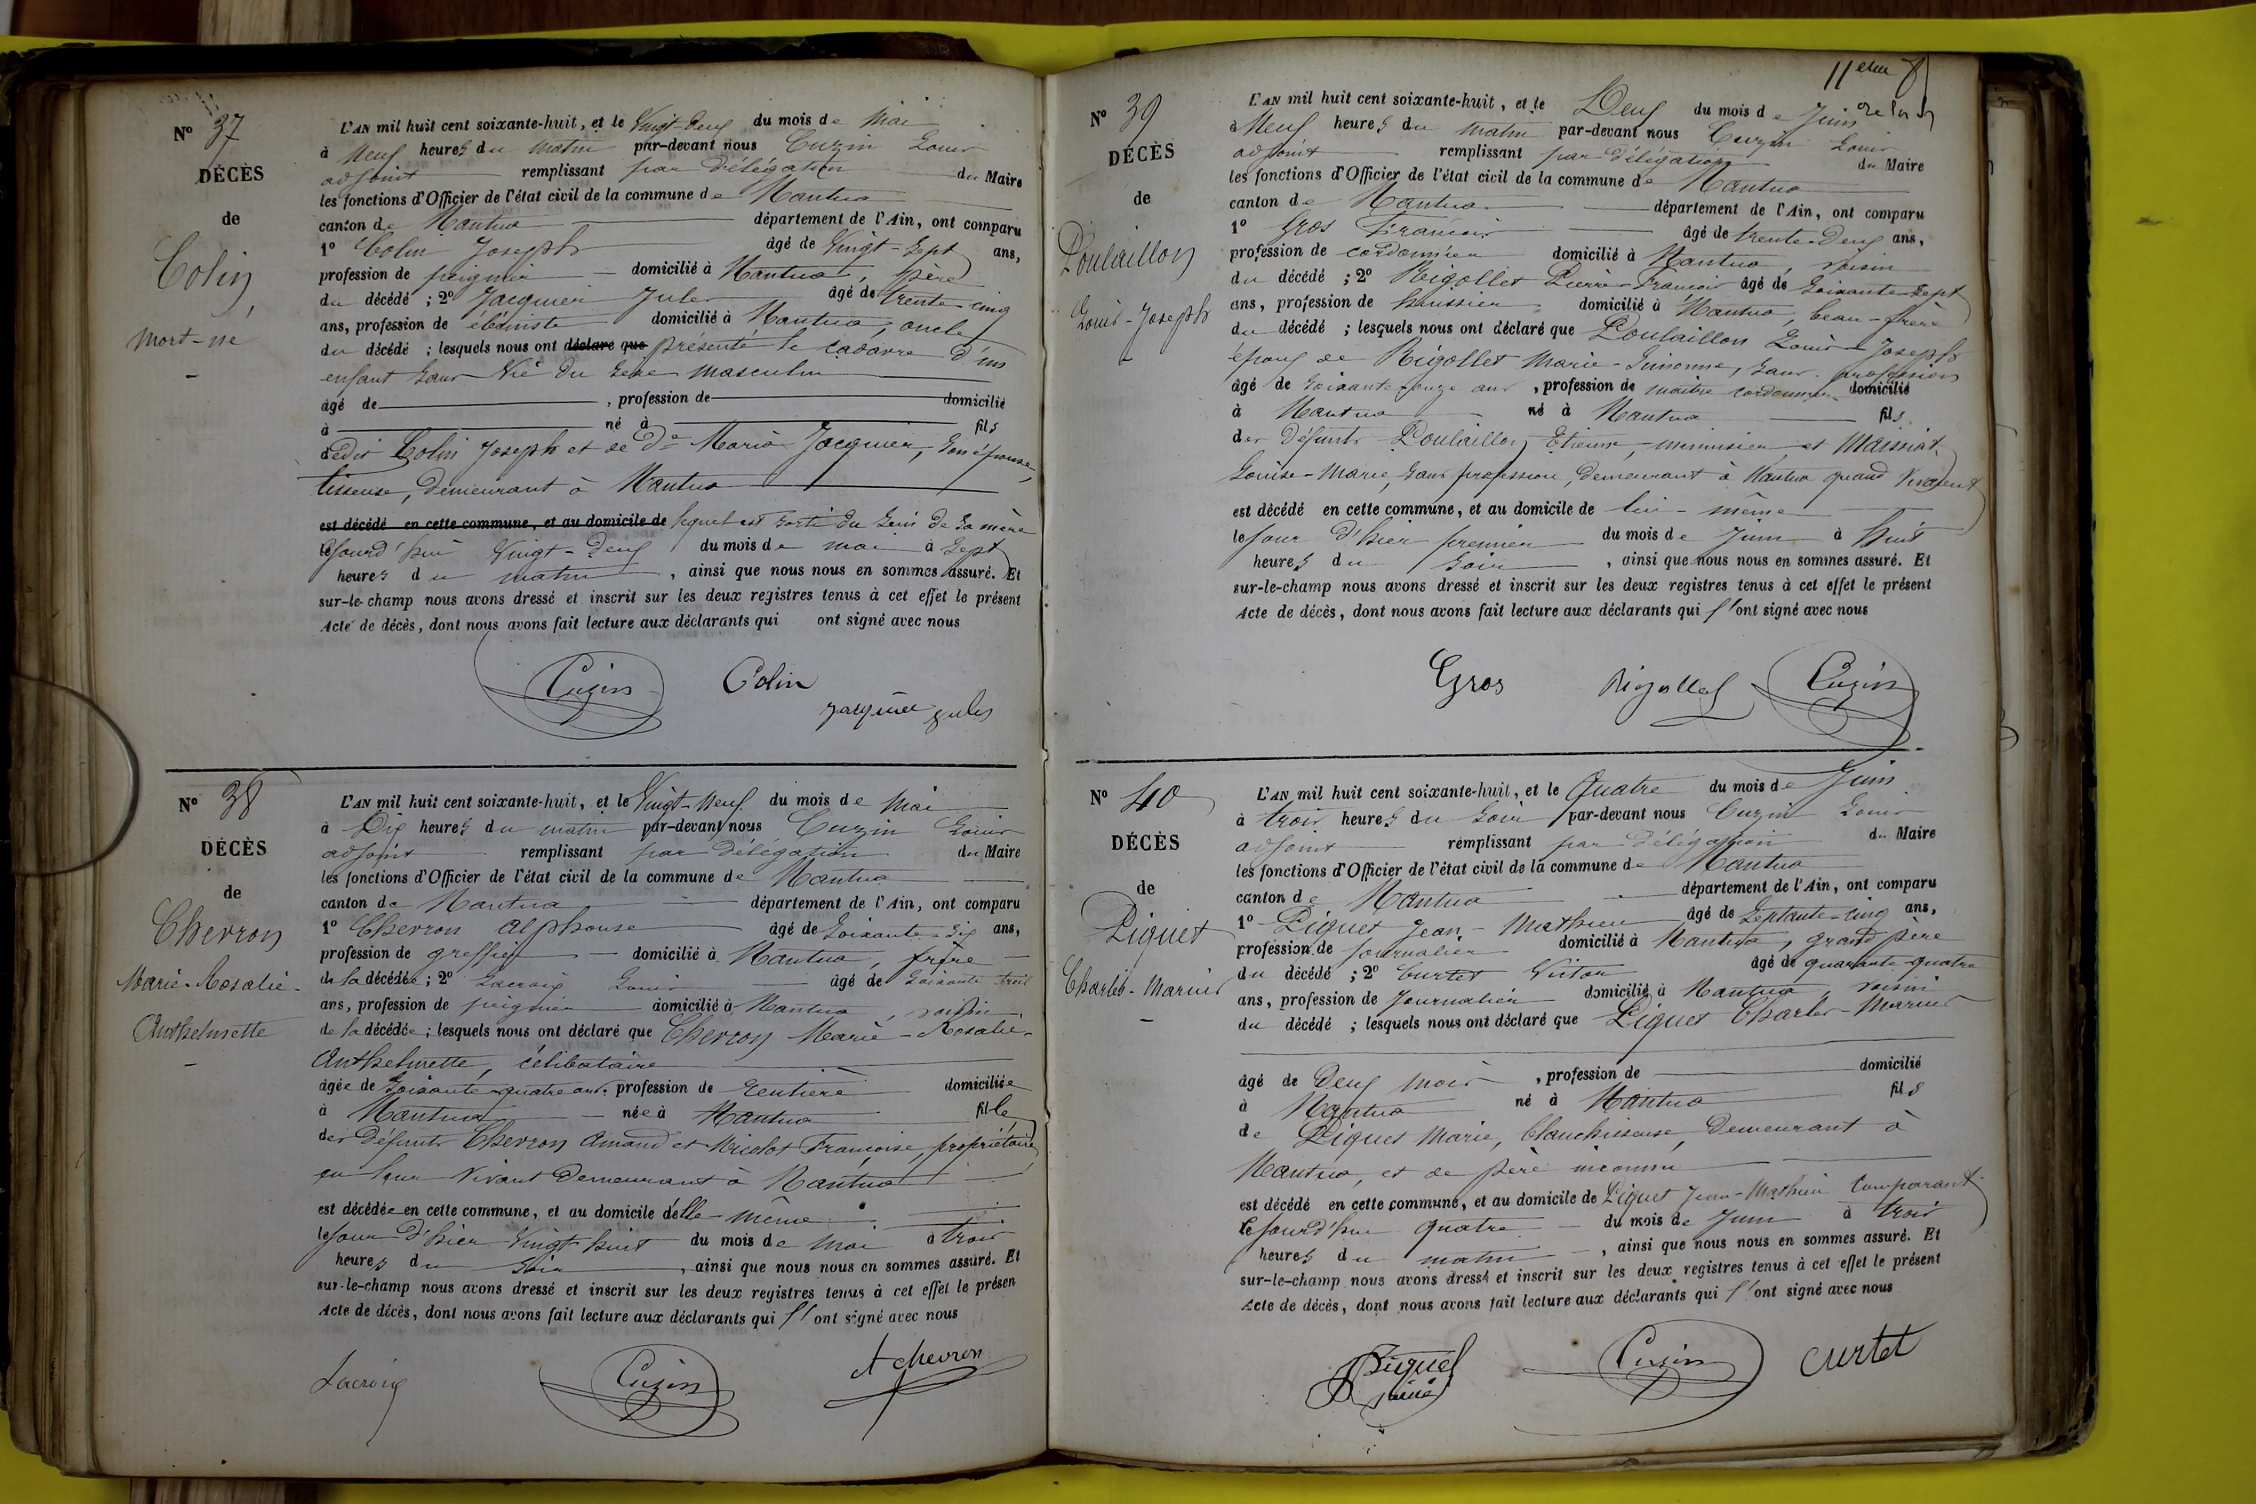 N° 37
DÉCÈS
de
Colin,
mort-né
L'AN mil huit cent soixante-huit, et le Vingt-deux du mois de Mai
à Neuf heures du matin par-devant nous Cuzin Louis
adjoint remplissant par délégation du Maire
les fonctions d'Officier de l'état civil de la commune de Nantua
canton de Nantua département de l'Ain, ont comparu
1° Colin Joseph âgé de Vingt-sept ans,
profession de peigneur domicilié à Nantua, père
du décédé ; 2° Jacquier Jules âgé de trente-cinq
ans, profession de ébéniste domicilié à Nantua, oncle
du décédé ; lesquels nous ont déclaré que présenté le cadavre d'un
enfant sans vie du sexe masculin
âgé de , profession de domicilié
à né à fils
dudit Colin Joseph et de De Maria Jacquier, son épouse,
tisseuse, demeurant à Nantua
est décédé en cette commune, et au domicile de lequel est sorti du sein de sa mère
cejourd'hui Vingt-deux du mois de mai à Sept
heures du matin , ainsi que nous nous en sommes assuré. Et
sur-le-champ nous avons dressé et inscrit sur les deux registres tenus à cet effet le présent
Acte de décès, dont nous avons fait lecture aux déclarants qui ont signé avec nous
Cuzin Colin
Jacquier Jules
N° 38
DÉCÈS
de
Chevron
Marie-Rosalie-
Anthelmette
L'AN mil huit cent soixante-huit, et le Vingt-Neuf du mois de Mai
à Dix heures du matin par-devant nous Cuzin Louis
adjoint remplissant par délégation du Maire
les fonctions d'Officier de l'état civil de la commune de Nantua
canton de Nantua département de l'Ain, ont comparu
1° Chevron Alphonse âgé de Soixante-dix ans,
profession de greffier domicilié à Nantua, frère
de la décédée ; 2° Lacroix Louis âgé de Soixante trois
ans, profession de peigneur domicilié à Nantua, voisin
de la décédée ; lesquels nous ont déclaré que Chevron Marie-Rosalie-
Anthelmette, célibataire
âgée de Soixante-quatre ans, profession de rentière domiciliée
à Nantua née à Nantua fille
des défunts Chevron Amand et Nicolot Françoise, propriétaires
en leur vivant demeurant à Nantua
est décédée en cette commune, et au domicile d'elle-même
le jour d'hier Vingt huit du mois de Mai à trois
heures du soir , ainsi que nous nous en sommes assuré. Et
sur-le-champ nous avons dressé et inscrit sur les deux registres tenus à cet effet le présen
Acte de décès, dont nous avons fait lecture aux déclarants qui l'ont signé avec nous
Lacroix Cuzin A chevron
N° 39
DÉCÈS
de
Poulaillon
Louis-Joseph
L'AN mil huit cent soixante-huit, et le Deux du mois de Juin
à Neuf heures du matin par-devant nous Cuzin Louis
adjoint remplissant par délégation du Maire
les fonctions d'Officier de l'état civil de la commune de Nantua
canton de Nantua département de l'Ain, ont comparu
1° Gros François âgé de trente-deux ans,
profession de cordonnier domicilié à Nantua, voisin
du décédé ; 2° Rigollet Pierre-François âgé de Soixante-sept
ans, profession de huissier domicilié à Nantua, beau-frère
du décédé ; lesquels nous ont déclaré que Poulaillon Louis-Joseph
époux de Rigollet Marie-Simonne, sans profession
âgé de Soixante-onze ans, profession de maître cordonnier domicilié
à Nantua né à Nantua fils
des défunts Poulaillon Etienne, menuisier, et Maissiat
Louise-Marie, sans profession, demeurant à Nantua quand vivaient
est décédé en cette commune, et au domicile de lui-même
le jour d'hier premier du mois de Juin à huit
heures du soir , ainsi que nous nous en sommes assuré. Et
sur-le-champ nous avons dressé et inscrit sur les deux registres tenus à cet effet le présent
Acte de décès, dont nous avons fait lecture aux déclarants qui l'ont signé avec nous
Gros Rigollet Cuzin
N° 40
DÉCÈS
de
Piquet
Charles-Marius
L'AN mil huit cent soixante-huit, et le Quatre du mois de Juin
à trois heures du soir par-devant nous Cuzin Louis
adjoint remplissant par délégation du Maire
les fonctions d'Officier de l'état civil de la commune de Nantua
canton de Nantua département de l'Ain, ont comparu
1° Piquet Jean-Mathieu âgé de Septante-cinq ans,
profession de journalier domicilié à Nantua, grand père
du décédé ; 2° Curtet Victor âgé de quarante-quatre
ans, profession de Journalier domicilié à Nantua, voisin
du décédé ; lesquels nous ont déclaré que Piquet Charles-Marius
âgé de Deux mois , profession de domicilié
à Nantua né à Nantua fils
de Piquet Marie, blanchisseuse, demeurant à
Nantua, et de père inconnu
est décédé en cette commune, et au domicile de Piquet Jean-Mathieu comparant
cejourd'hui quatre du mois de Juin à trois
heures du matin , ainsi que nous nous en sommes assuré. Et
sur-le-champ nous avons dressé et inscrit sur les deux registres tenus à cet effet le présent
Acte de décès, dont nous avons fait lecture aux déclarants qui l'ont signé avec nous
Piquet Cuzin curtet